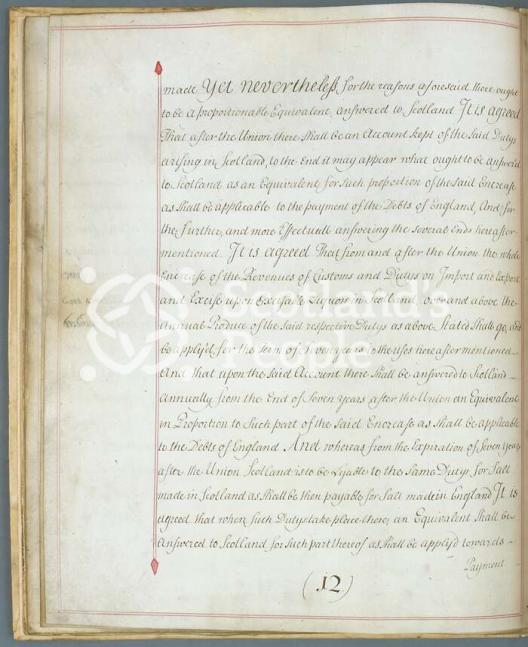 made Yet nevertheless for the reasons aforesaid there ought
to be a proportionable Equivalent answered to Scotland It is agreed
That after the Union there shall be an Account kept of the said Dutys
arising in Scotland, to the End it may appear what ought to be answer'd
to Scotland as an Equivalent for such proportion of the said Encrease
as shall be applicable to the payment of the Debts of England, And for
the further, and more Effectuall answering the several Ends hereafter
mentioned. It is agreed That from and after the Union the whole
Encrease of the Revenues of Customs and Dutys on Import and Export
and Excise upon Exciseable Liquors in Scotland, over and above the
annual Produce of the said respective Dutys as above Stated Shall go, and
be apply'd, for the Term of Seven years to the Uses hereafter mentioned
And that upon the said Account there shall be answered to Scotland
Annually from the End of Seven years after the Union an Equivalent
in Proportion to such part of the said Encrease as shall be applicable
to the Debts of England. And whereas from the Expiration of Seven years
after the Union Scotland is to be Lyable to the same Dutys for Salt
made in Scotland as shall be then payable for Salt made in England It is
agreed that when such Dutys take place there, an Equivalent shall be
Answered to Scotland for such part thereof as shall be apply'd towards -
Payment
(12)
Scotland's
People